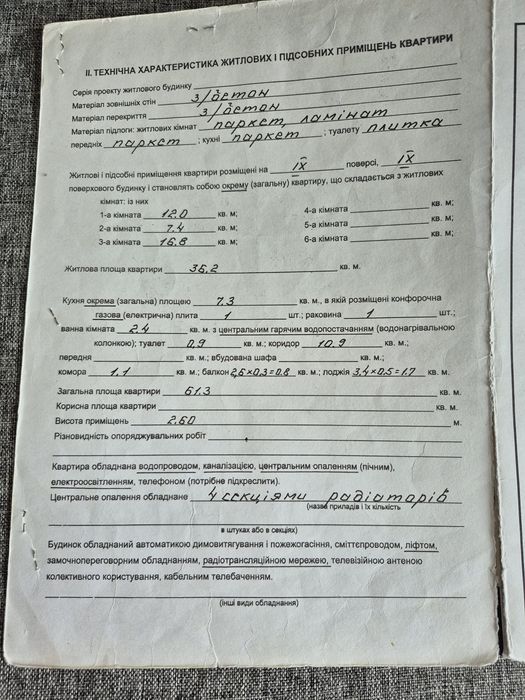 II. ТЕХНІЧНА ХАРАКТЕРИСТИКА ЖИТЛОВИХ І ПІДСОБНИХ ПРИМІЩЕНЬ КВАРТИРИ
Серія проекту житлового будинку
Матеріал зовнішніх стін з/бетон
Матеріал перекриття з/бетон
Матеріал підлоги: житлових кімнат паркет, ламінат
передніх паркет ; кухні паркет ; туалету плитка
Житлові і підсобні приміщення квартири розміщені на IX поверсі, IX
поверхового будинку і становлять собою окрему (загальну) квартиру, що складається з житлових
кімнат: із них
1-а кімната 12.0 кв. м; 4-а кімната кв. м;
2-а кімната 7.4 кв. м; 5-а кімната кв. м;
3-а кімната 16.8 кв. м; 6-а кімната кв. м;
Житлова площа квартири 36,2 кв. м.
Кухня окрема (загальна) площею 7.3 кв. м., в якій розміщені конфорочна
газова (електрична) плита 1 шт.; раковина 1 шт.;
ванна кімната 2.4 кв. м. з центральним гарячим водопостачанням (водонагрівальною
колонкою); туалет 0,9 кв. м.; коридор 10.9 кв. м.;
передня кв. м.; вбудована шафа кв. м.;
комора 1.1 кв. м.; балкон 2,6×0,3=0.8 кв. м.; лоджія 3,4×0.5=1.7 кв. м.
Загальна площа квартири 61.3 кв. м.
Корисна площа квартири кв. м.
Висота приміщень 2.60 м.
Різновидність опоряджувальних робіт
Квартира обладнана водопроводом, каналізацією, центральним опаленням (пічним),
електроосвітленням, телефоном (потрібне підкреслити).
Центральне опалення обладнане 4 секціями радіаторів
(назва приладів і їх кількість
в штуках або в секціях)
Будинок обладнаний автоматикою димовитягування і пожежогасіння, сміттєпроводом, ліфтом,
замочнопереговорним обладнанням, радіотрансляційною мережею, телевізійною антеною
колективного користування, кабельним телебаченням.
(інші види обладнання)